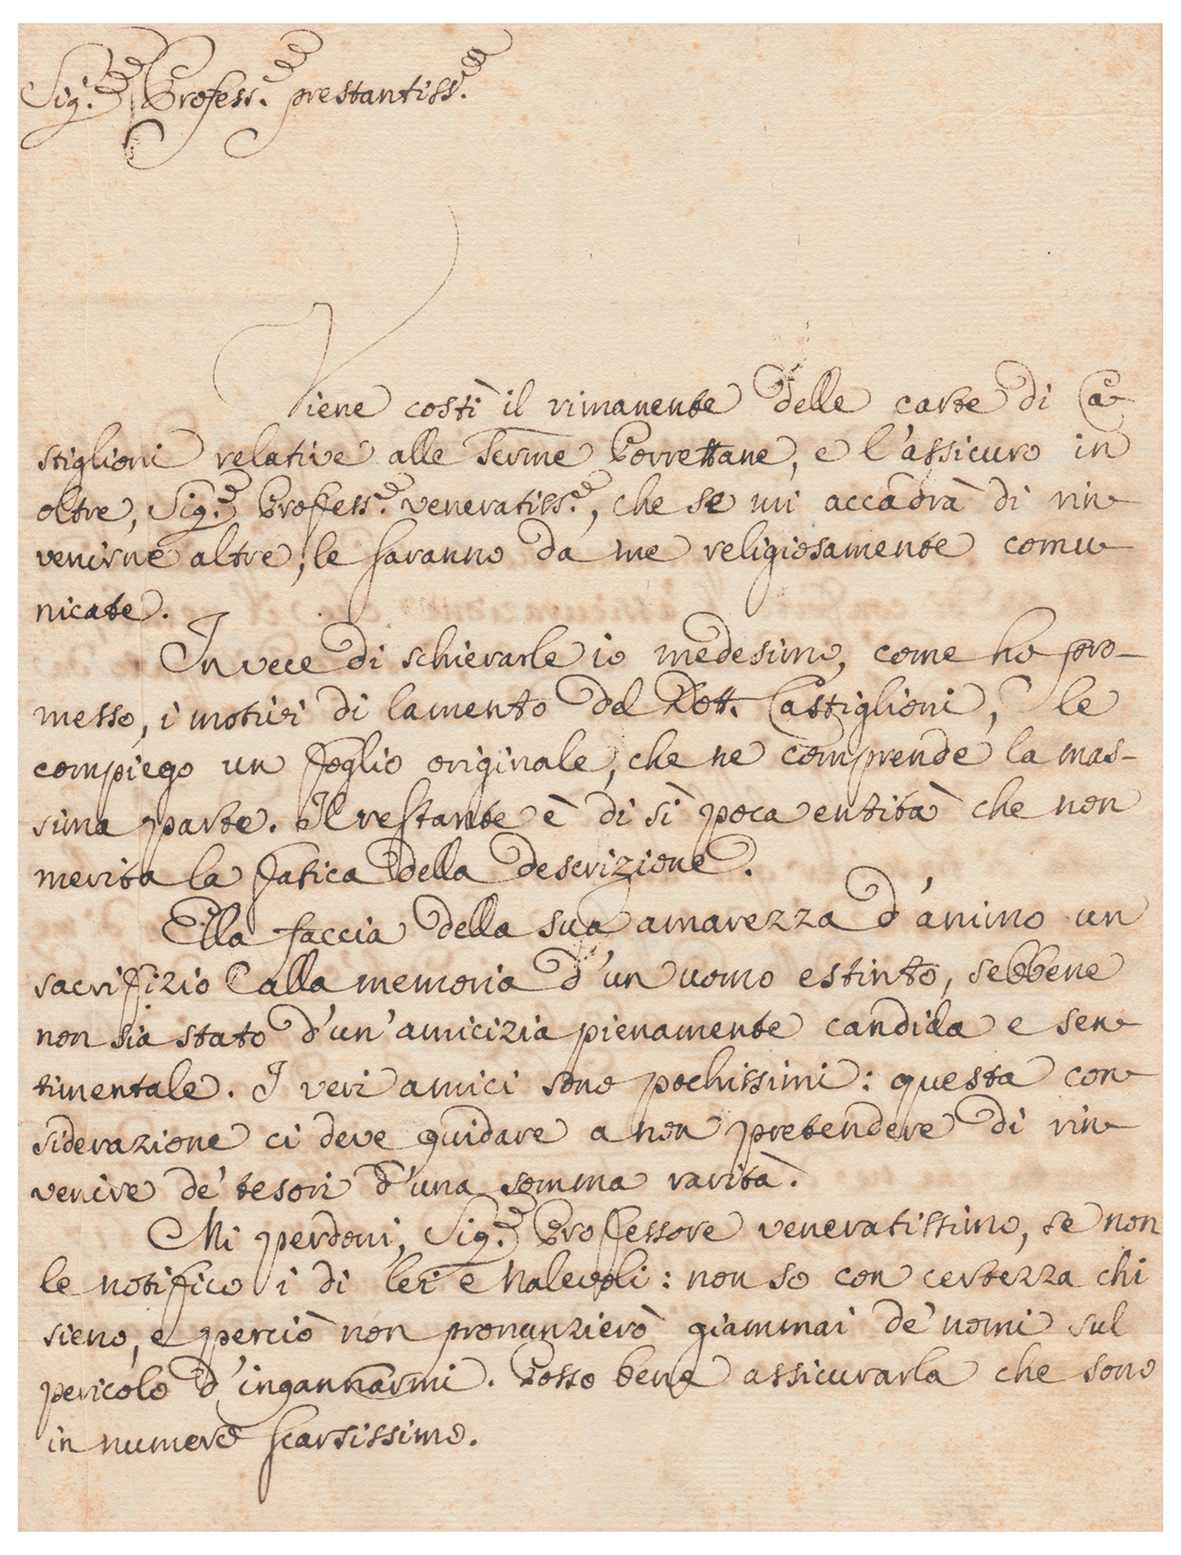 Sig.re Profess.re prestantiss.e
Viene costì il rimanente delle carte di Ca-
stiglioni relative alle Terme Porrettane, e l'assicuro in
oltre, Sig.re Profess.re veneratiss.e, che se mi accadrà di rin-
venirne altre, le saranno da me religiosamente comu-
nicate.
In vece di schierarle io medesimo, come ho pro-
messo, i motivi di lamento del Dott. Castiglioni, le
compiego un foglio originale, che ne comprende la mas-
sima parte. Il restante è di sì poca entità che non
merita la fatica della descrizione.
Ella faccia della sua amarezza d'animo un
sacrifizio alla memoria d'un uomo estinto, sebbene
non sia stato d'un'amicizia pienamente candida e sen-
timentale. I veri amici sono pochissimi: questa con-
siderazione ci deve guidare a non pretendere di rin-
venire de' tesori d'una somma rarità.
Mi perdoni, Sig.re Professore veneratissimo, se non
le notifico i di lei Malevoli: non so con certezza chi
sieno, e perciò non pronunzierò giammai de' nomi sul
pericolo d'ingannarmi. Posso bene assicurarla che sono
in numero scarsissimo.